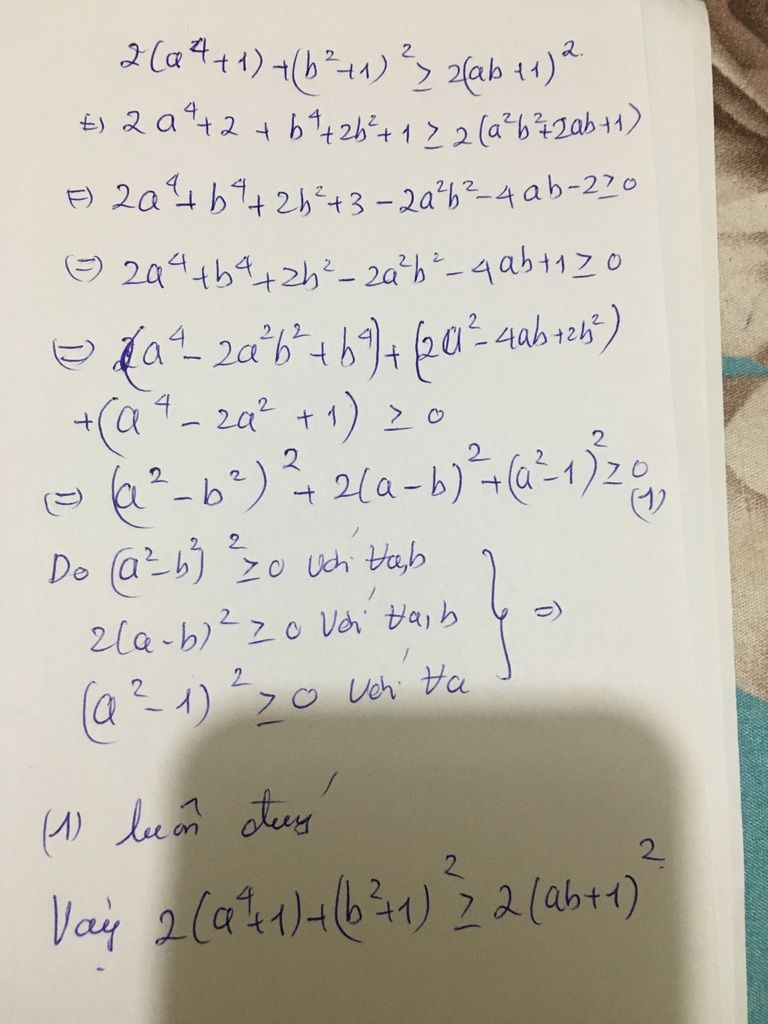 2(a⁴+1)+(b²+1)² ≥ 2(ab+1)²
⇔) 2a⁴+2+b⁴+2b²+1 ≥ 2(a²b²+2ab+1)
⇔) 2a⁴+b⁴+2b²+3-2a²b²-4ab-2≥0
(=) 2a⁴+b⁴+2b²-2a²b²-4ab+1≥0
(=) (a⁴-2a²b²+b⁴)+(2a²-4ab+2b²)
+(a⁴-2a²+1) ≥ 0
(=) (a²-b²)²+2(a-b)²+(a²-1)²≥0 (1)
Do (a²-b²)² ≥0 với ∀a,b
2(a-b)² ≥0 với ∀a,b } =>
(a²-1)² ≥0 với ∀a
(1) luôn đúng
Vậy 2(a⁴+1)+(b²+1)² ≥ 2(ab+1)²